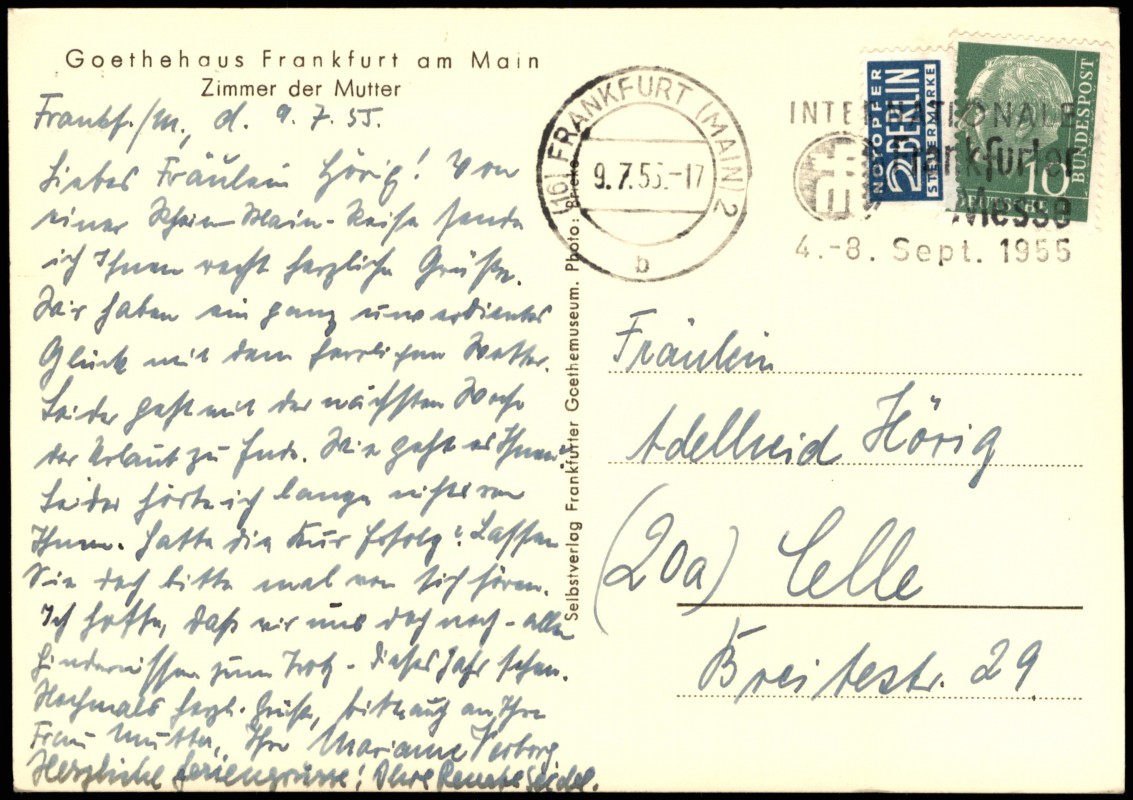 Goethehaus Frankfurt am Main
Zimmer der Mutter
Frankf./M., d. 9.7.55.
Liebes Fräulein Hörig! Von
einer Rhein-Main-Reise sende
ich Ihnen recht herzliche Grüße.
Wir haben ein ganz unverdientes
Glück mit dem herrlichen Wetter.
Leider geht mit der nächsten Woche
der Urlaub zu Ende. Wie geht es Ihnen?
Leider hörte ich lange nichts von
Ihnen. Hatte die Kur Erfolg? Lassen
Sie doch bitte mal von sich hören.
Ich hoffe, daß wir uns doch noch - allen
Hindernissen zum Trotz - dieses Jahr sehen.
Nochmals herzl. Grüße, bitte auch an Ihre
Frau Mutter, Ihre Marianne
Herzliche Feriengrüsse! Ihre Renate Seidel.
Selbstverlag Frankfurter Goethemuseum. Photo:
(16) FRANKFURT (MAIN) 2
9.7.55.-17
b
INTERNATIONALE
Frankfurter
Messe
4.-8. Sept. 1955
NOTOPFER
2 BERLIN
STEUERMARKE
10
DEUTSCHE
BUNDESPOST
Fräulein
Adelheid Hörig
(20a) Celle
Breitestr. 29